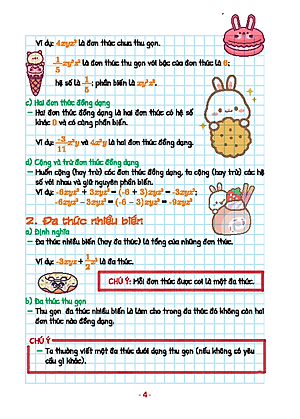 Ví dụ: 4xyz² là đơn thức chưa thu gọn.
1/5 xy²z³ là đơn thức thu gọn với bậc của đơn thức là 6;
hệ số là 1/5; phần biến là xy²z³.
c) Hai đơn thức đồng dạng
– Hai đơn thức đồng dạng là hai đơn thức có hệ số
khác 0 và có cùng phần biến.
Ví dụ: -3/11 x²y và 4x²y là hai đơn thức đồng dạng.
d) Cộng và trừ đơn thức đồng dạng
– Muốn cộng (hay trừ) các đơn thức đồng dạng, ta cộng (hay trừ) các hệ
số với nhau và giữ nguyên phần biến.
Ví dụ: -6xyz² + 3xyz² = (-6 + 3)xyz² = -3xyz²;
-6xyz² - 3xyz² = (-6 - 3)xyz² = -9xyz²
2. Đa thức nhiều biến
a) Định nghĩa
– Đa thức nhiều biến (hay đa thức) là tổng của những đơn thức.
Ví dụ: -3xyz + 1/2 x² là đa thức.
CHÚ Ý: Mỗi đơn thức được coi là một đa thức.
b) Đa thức thu gọn
– Thu gọn đa thức nhiều biến là làm cho trong đa thức đó không còn hai
đơn thức nào đồng dạng.
CHÚ Ý
– Ta thường viết một đa thức dưới dạng thu gọn (nếu không có yêu
cầu gì khác).
- 4 -